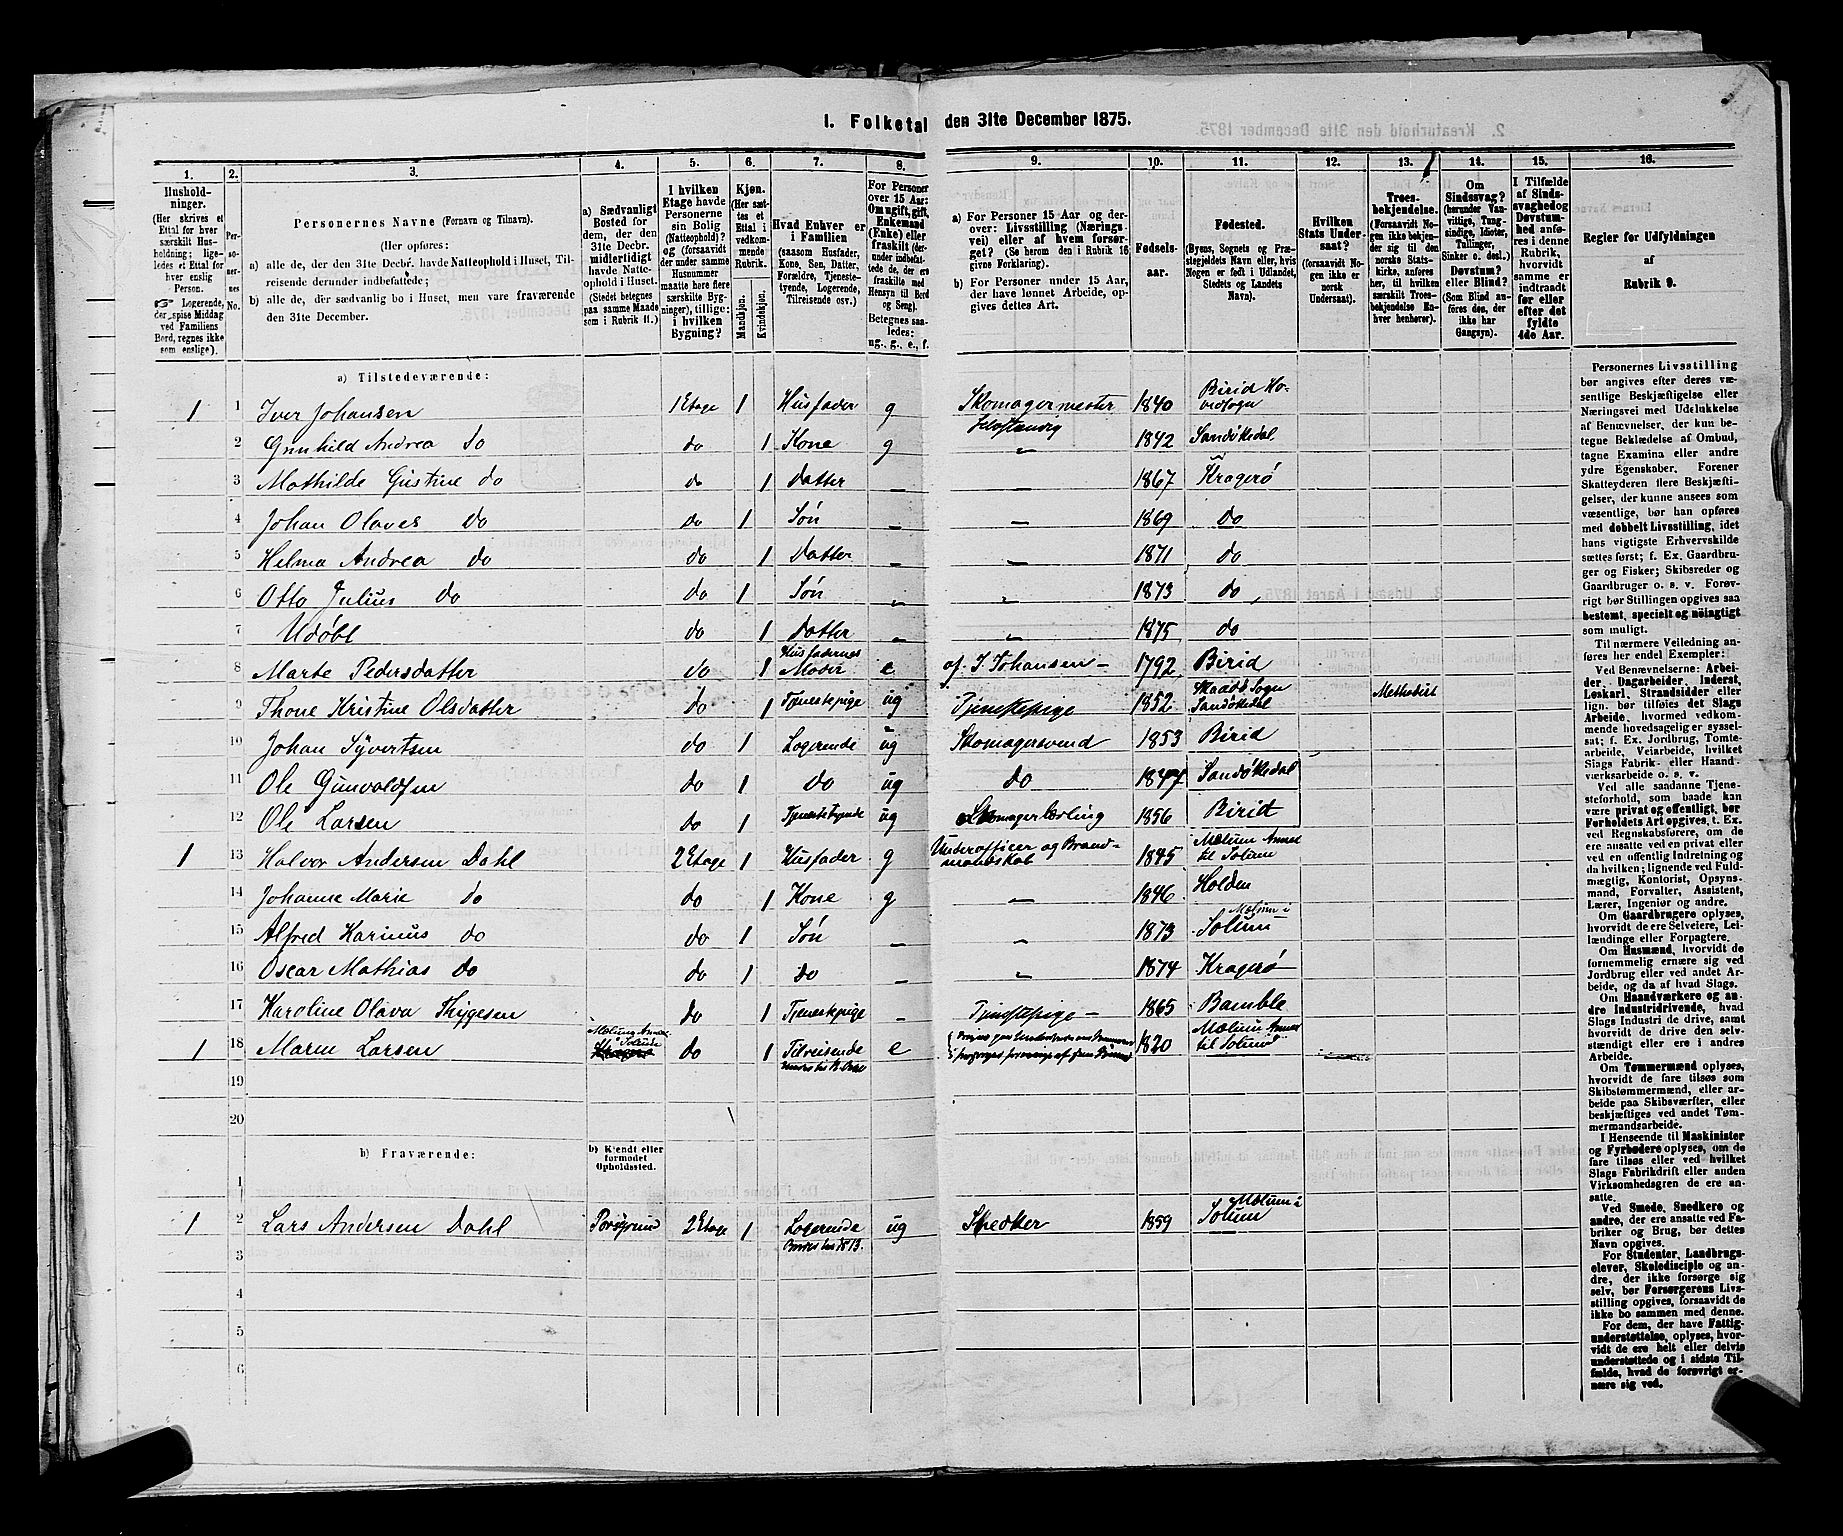 1. Folketal den 31te December 1875.
2. Kreaturhold den 31te December 1875.
1. 2. 3. 4. 5. 6. 7. 8. 9. 10. 11. 12. 13. 14. 15. 16.
Hushold-
ninger.
(Her skrives et
Ettal for hver
særskilt Hus-
holdning; lige-
ledes et Ettal for
hver enslig
Person.
☞ Logerende,
der spise Middag
ved Familiens
Bord, regnes ikke
som enslige).
Per-
soner-
nes
No.
Personernes Navne (Fornavn og Tilnavn).
(Her opføres:
a) alle de, der den 31te Decbr. havde Natteophold i Huset, Til-
reisende derunder indbefattede;
b) alle de, der sædvanlig bo i Huset, men vare fraværende
den 31te December.
a) Sædvanligt
Bosted for
dem, der den
31te Decbr.
midlertidigt
havde Natte-
ophold i Huset.
(Stedet betegnes
paa samme Maade
som i Rubrik 11.)
I hvilken
Etage havde
Personerne
sin Bolig
(Natteophold)?
og (forsaavidt
der under samme
Husnummer
maatte høre flere
særskilte Byg-
ninger), tillige:
i hvilken
Bygning?
Kjøn.
(Her sæt-
tes et
Ettal i
vedkom-
mende
Rubrik.
Mandkjøn.
Kvindekjøn.
Hvad Enhver er
i Familien
(saasom Husfader,
Kone, Søn, Datter,
Forældre, Tjeneste-
tyende, Logerende,
Tilreisende osv.)
For Personer
over 15 Aar:
Om ugift, gift,
Enkemand
(Enke) eller
fraskilt (der-
under indbefat-
tede de, der ere
fraskilte med
Hensyn til Bord
og Seng).
Betegnes saa-
ledes:
ug., g., e., f.
a) For Personer 15 Aar og der-
over: Livsstilling (Nærings-
vei) eller af hvem forsør-
get? (Se herom den i Rubrik 16
givne Forklaring).
b) For Personer under 15 Aar,
der have lønnet Arbeide, op-
gives dettes Art.
Fødsels-
aar.
Fødested.
(Byens, Sognets og Præ-
stegjeldets Navn eller, hvis
Nogen er født i Udlandet,
Stedets og Landets
Navn).
Hvilken
Stats Under-
saat?
(forsaavidt No-
gen ikke er
norsk
Undersaat).
Troes-
bekjendelse.
(Forsaavidt No-
gen ikke bekjen-
der sig til den
norske Stats-
kirke, anføres
her, til hvilken
særskilt Troes-
bekjendelse En-
hver henhører).
Om
Sindssvag?
(herunder Van-
vittige, Tung-
sindige, Idioter,
Tullinger,
Sinker o. desl.)
Døvstum?
eller Blind?
(Som Blind an-
føres de, der
ikke har
Gangsyn).
I Tilfælde
af Sinds-
svaghed og
Døvstum-
hed anfø-
res i denne
Rubrik,
hvorvidt
samme er
indtraadt
før eller
efter det
fyldte
4de Aar.
Regler for Udfyldningen
af
Rubrik 9.
a) Tilstedeværende:
1 1 Iver Johansen 1 Etage 1 Husfader g Skomagermester Selvstændig 1840 Birid Ho-vedsogn
2 Gunhild Andrea do do 1 Kone g „ 1842 Sandøkedal
3 Mathilde Gustine do do 1 Datter – – 1867 Kragerø
4 Johan Olaves do do 1 Søn – – 1869 do
5 Helma Andrea do do 1 Datter – – 1871 do
6 Otto Julius do do 1 Søn „ „ 1873 do
7 Udøbt do 1 Datter „ „ 1875 do
8 Marte Pedersdatter do 1 Husfaderens Moder e af I. Johansen – 1792 Birid
9 Thone Kristine Olsdatter do 1 Tjenestepige ug Tjenestepige 1852 Skaadø Sogn Sandøkedal Methodist
10 Johan Syvertsen do 1 Logerende ug Skomagersvend 1853 Birid
11 Ole Gunvoldsen do 1 do ug do 1847 Sandøkedal
12 Ole Larsen do 1 Tjenestetyende ug Skomagerlærling 1856 Birid
1 13 Halvor Andersen Dahl 2 Etage 1 Husfader g Underofficer og Brand- 1845 Mælum Annex til Solum
14 Johanne Marie do do 1 Kone g „ 1846 Holden
15 Alfred Karinus do do 1 Søn – „ 1873 Mælum i Solum
16 Oscar Mathias do do 1 do – „ 1874 Kragerø
17 Karoline Olava Thygesen do 1 Tjenestepige – Tjenstepige – 1865 Bamble
1 18 Maren Larsen Mælum Annex i Solum Kragerø do 1 Tilreisende e 1820 Mælum Annex til Solum
19
20
b) Fraværende:
b) Kjendt eller
formodet
Opholdssted.
1
1 2 Lars Andersen Dahl Porsgrund 2 Etage 1 Logerende ug Snedker 1859 Mælum i Solum
3
4
5
6
Personernes Livsstilling
bør angives efter deres væ-
sentlige Beskjæftigelse eller
Næringsvei med Udelukkelse
af Benævnelser, der kun be-
tegne Beklædelse af Ombud,
tagne Examina eller andre
ydre Egenskaber. Forener
Skatteyderen flere Beskjæfti-
gelser, der kunne ansees som
væsentlige, bør han opføres
med dobbelt Livsstilling, idet
hans vigtigste Erhvervskilde
sættes først; f. Ex. Gaardbru-
ger og Fisker; Skibsreder og
Gaardbruger o. s. v. Forøv-
rigt bør Stillingen opgives saa
bestemt, specielt og nøiagtigt
som muligt.
Til nærmere Veiledning an-
føres her endel Exempler:
Ved Benævnelserne: Arbei-
der, Dagarbeider, Inderst,
Løskarl, Strandsidder eller
lign. bør tilføies det Slags
Arbeide, hvormed vedkom-
mende hovedsagelig er syssel-
sat; f. Ex. Jordbrug, Tomte-
arbeide, Veiarbeide, hvilket
Slags Fabrik- eller Haand-
værksarbeide o. s. v.
Ved alle saadanne Tjene-
steforhold, som baade kan
være privat og offentligt, bør
Forholdets Art opgives, t. Ex.
ved Regnskabsførere, om de
ere ansatte ved en privat eller
ved en offentlig Indretning og
da hvilken; lignende ved Fuld-
mægtig, Kontorist, Opsyns-
mand, Forvalter, Assistent,
Lærer, Ingeniør og andre.
Om Gaardbrugere oplyses,
hvorvidt de ere Selveiere, Lei-
lændinge eller Forpagtere.
Om Husmænd, hvorvidt de
fornemmelig ernære sig ved
Jordbrug eller ved andet Ar-
beide, og da af hvad Slags.
Om Haandværkere og an-
dre Industridrivende, hvad
Slags Industri de drive, samt
hvorvidt de drive den selv-
stændigt eller ere i andres
Arbeide.
Om Tømmermænd oplyses,
hvorvidt de fare tilsøs som
Skibstømmermænd, eller ar-
beide paa Skibsværfter, eller
beskjæftiges ved andet Tøm-
mermandsarbeide.
I Henseende til Maskinister
og Fyrbødere oplyses, om de
fare tilsøs eller ved hvilket
Slags Fabrikdrift eller anden
Virksomhedsgren de ere an-
satte.
Ved Smede, Snedkere og
andre, der ere ansatte ved Fa-
briker og Brug, bør dettes
Navn opgives.
For Studenter, Landbrugs-
elever, Skoledisciple og an-
dre, der ikke forsørge sig
selv, bør Forsørgerens Livs-
stilling opgives, forsaavidt de
ikke bo sammen med denne.
For dem, der have Fattig-
understøttelse, oplyses, hvor-
vidt de ere helt eller delvis
understøttede og i sidste Til-
fælde, hvad de forøvrigt er-
nære sig ved.